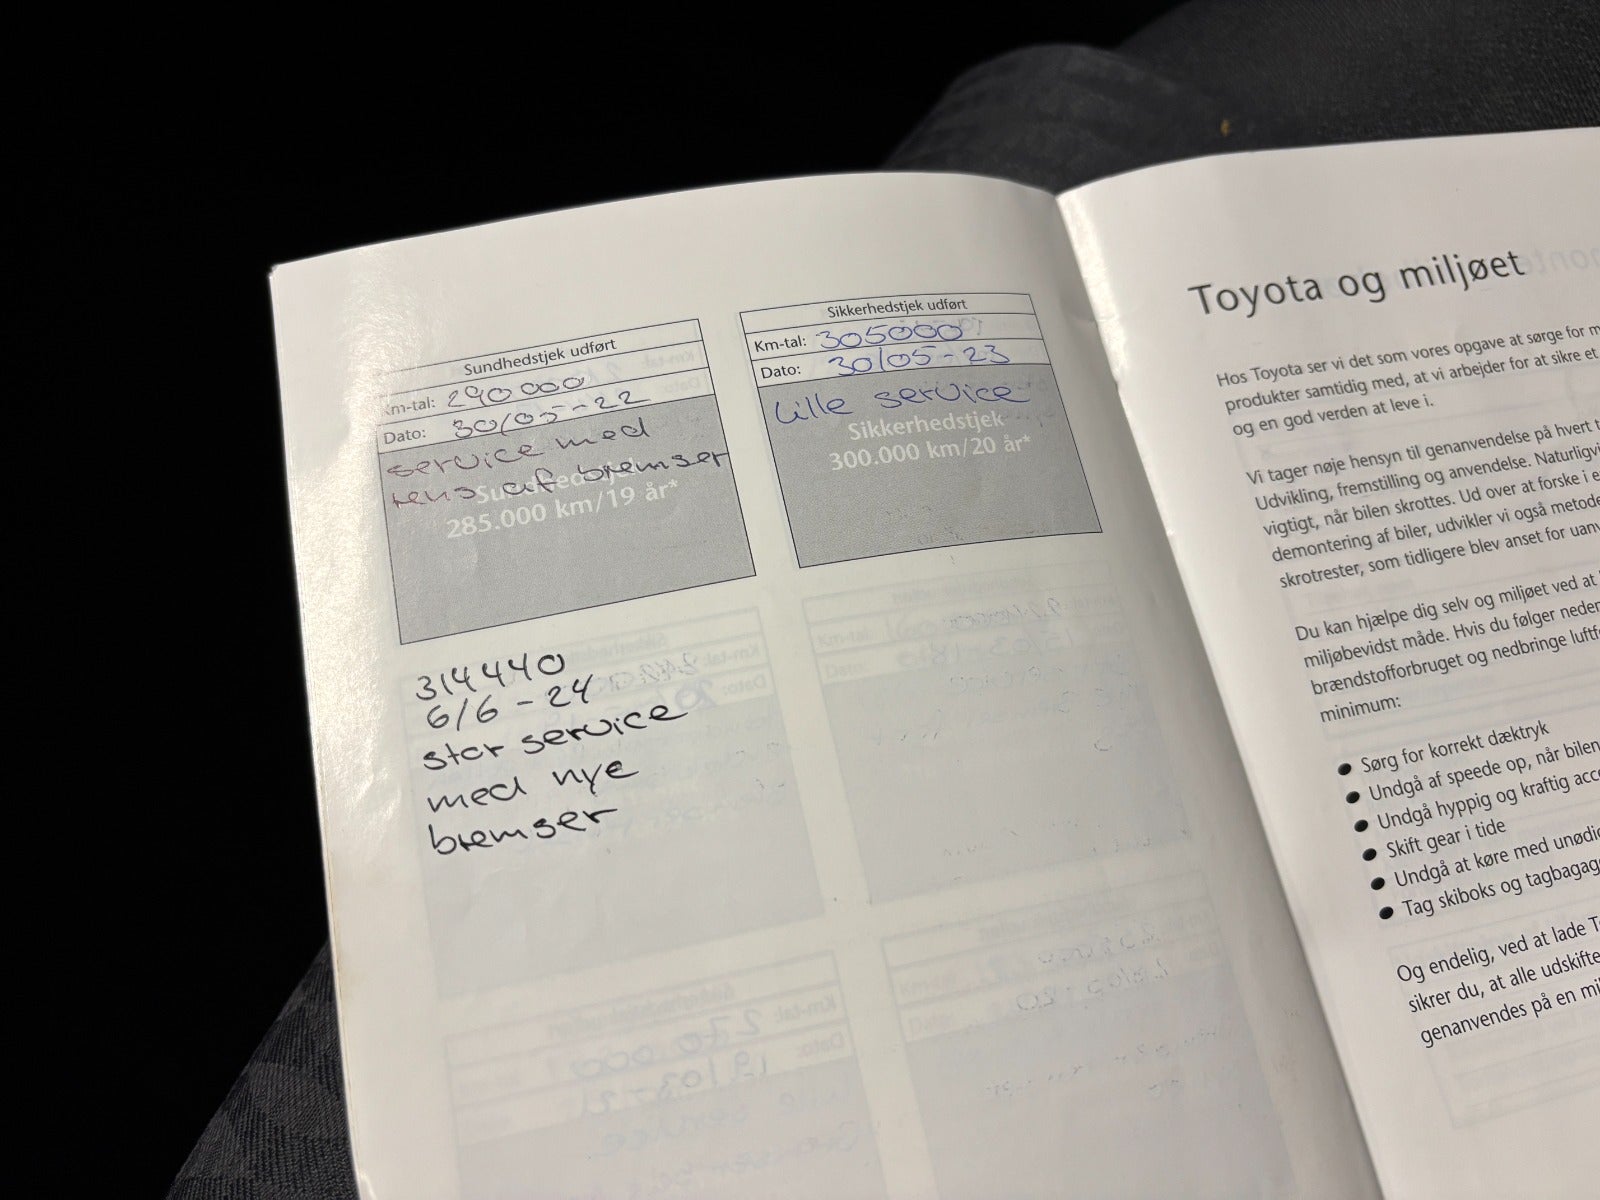 Sundhedstjek udført
Km-tal: 290000
Dato: 30/05-22
service med
rens af bremser
Sundhedstjek
285.000 km/19 år*
Sikkerhedstjek udført
Km-tal: 305000
Dato: 30/05-23
Lille service
Sikkerhedstjek
300.000 km/20 år*
314440
6/6-24
stor service
med nye
bremser
Toyota og miljøet
Hos Toyota ser vi det som vores opgave at sørge for
produkter samtidig med, at vi arbejder for at sikre et
og en god verden at leve i.
Vi tager nøje hensyn til genanvendelse på hvert
Udvikling, fremstilling og anvendelse. Naturligvi
vigtigt, når bilen skrottes. Ud over at forske i
demontering af biler, udvikler vi også metode
skrotrester, som tidligere blev anset for uan
Du kan hjælpe dig selv og miljøet ved at
miljøbevidst måde. Hvis du følger neden
brændstofforbruget og nedbringe luftf
minimum:
● Sørg for korrekt dæktryk
● Undgå af speede op, når bilen
● Undgå hyppig og kraftig acc
● Skift gear i tide
● Undgå at køre med unødi
● Tag skiboks og tagbagag
Og endelig, ved at lade
sikrer du, at alle udskifte
genanvendes på en mil